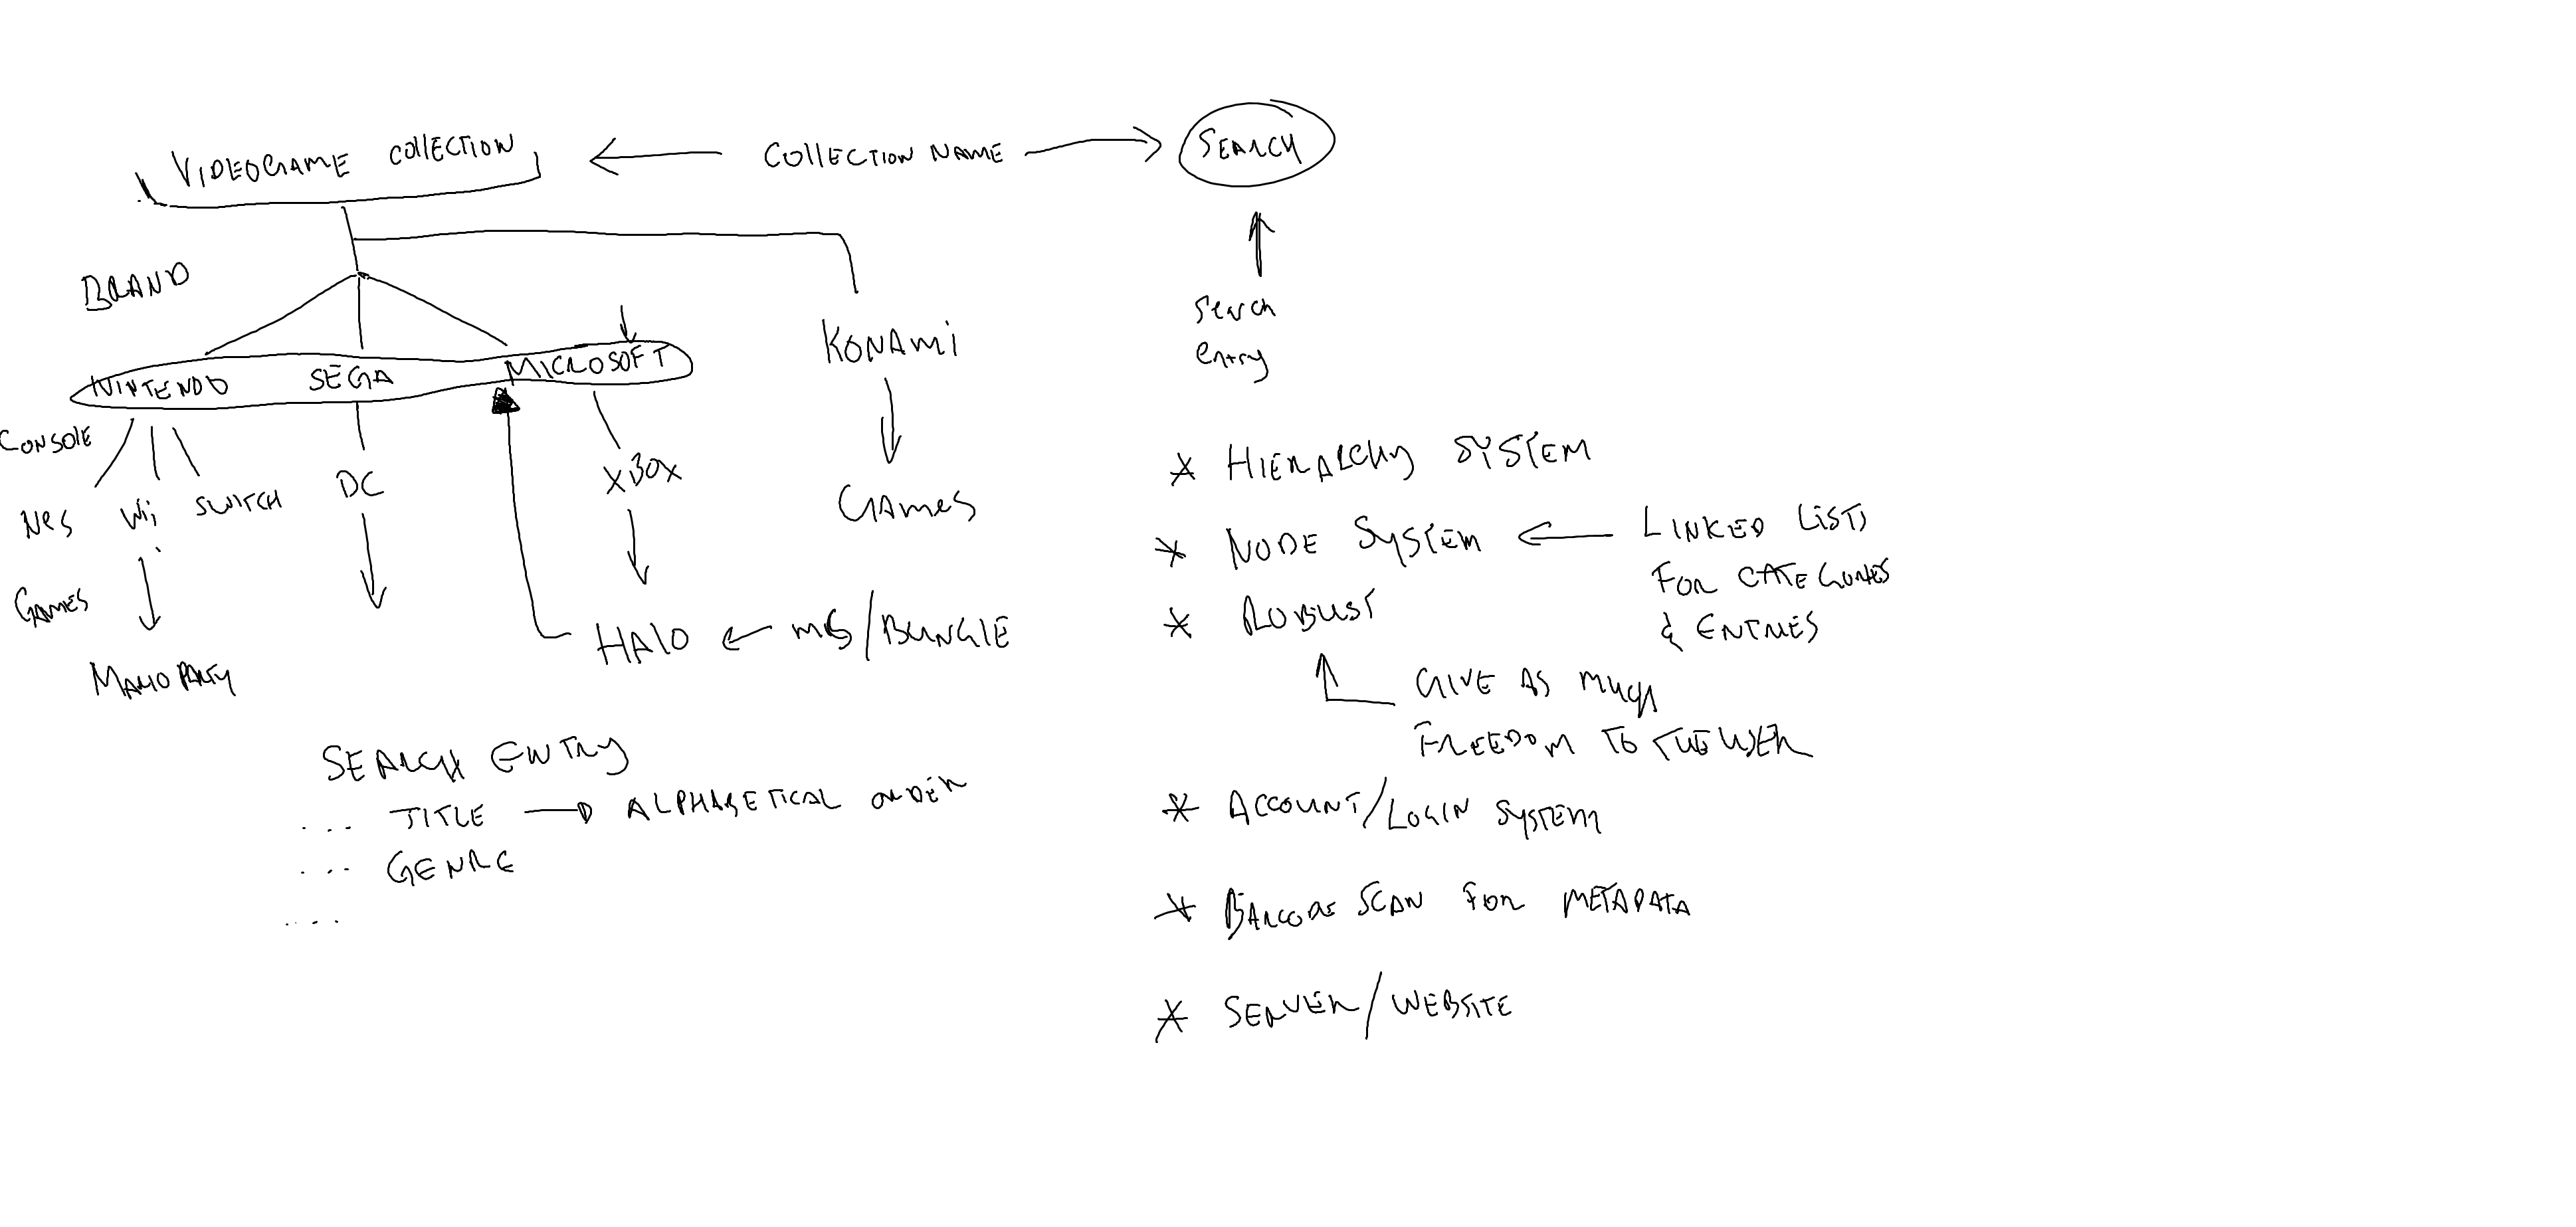 VIDEOGAME COllECTION
COllECTION NAME
SEARCH
BRAND
Search
entry
KONAMi
NINTENDO SEGA MICROSOFT
CONSOlE
NeS Wii SWITCH
DC
XBOX
GAMeS
GAMES
MARIO PARTY
HAlO
MS/BUNGIE
SEARCH ENTRY
... TITLE ALPHABETICAL ORDER
... GENRE
....
* HIERARCHY SYSTEM
* NODE SYSTEM
LINKED LISTS
FOR CATEGORIES
& ENTRIES
* ROBUST
GIVE AS MUCH
FREEDOM TO THE USER
* ACCOUNT/LOGIN SYSTEM
* BARCODE SCAN FOR METADATA
* SERVER/WEBSITE